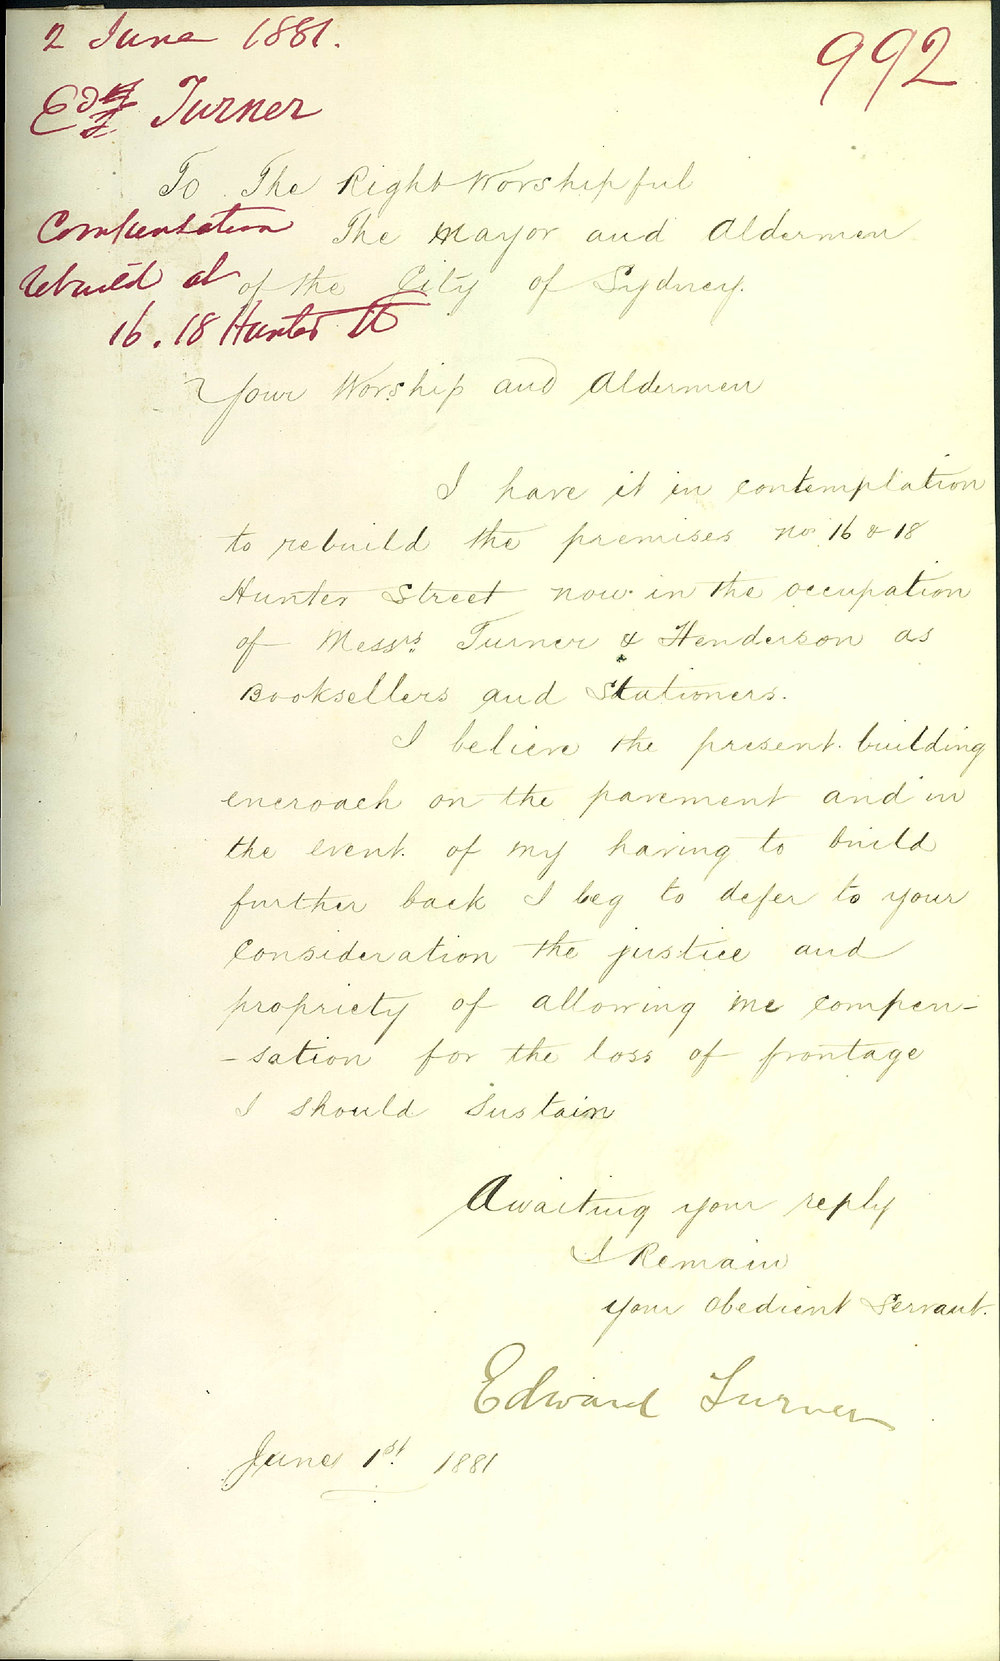 2 June 1881.
992
Edwd Turner
To The Right Worshipful
Compensation
The Mayor and Aldermen
rebuild at
of the City of Sydney.
16.18 Hunter St
Your Worship and Aldermen
I have it in contemplation
to rebuild the premises no 16 & 18
Hunter Street now in the occupation
of Messrs. Turner & Henderson as
Booksellers and Stationers.
I believe the present building
encroach on the pavement and in
the event of my having to build
further back I beg to defer to your
Consideration the justice and
propriety of allowing me compen-
-sation for the loss of frontage
I should sustain
Awaiting your reply
I Remain
your Obedient Servant.
Edward Turner
June 1st. 1881